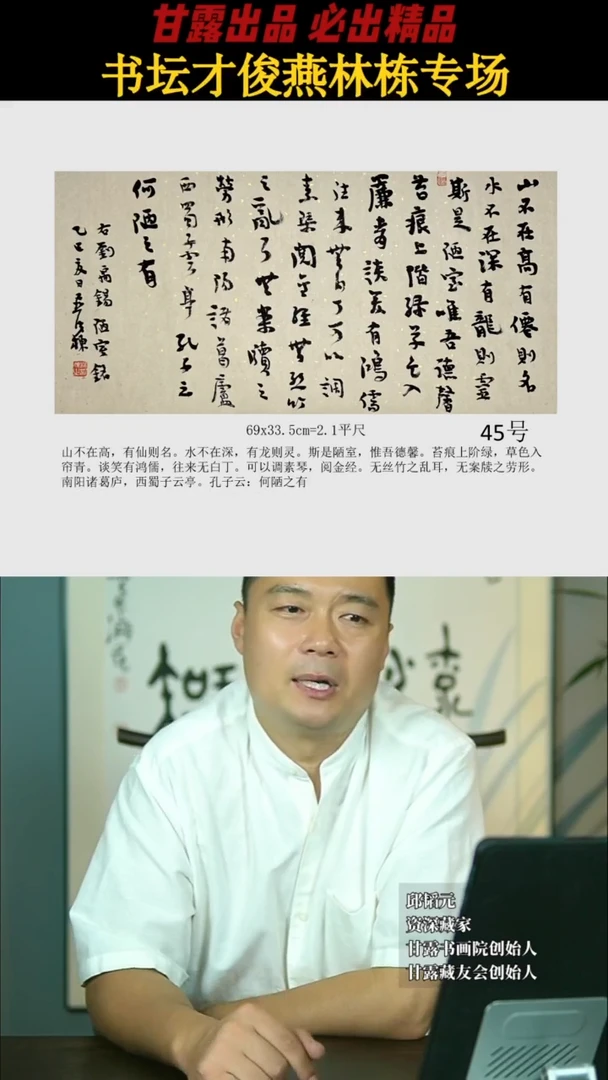 甘露出品 必出精品
书坛才俊燕林栋专场
山不在高有僊則名
水不在深有龍則靈
斯是陋室唯吾德馨
苔痕上階緑草色入
簾青談笑有鴻儒
往来無白丁可以調
素琹閲金經無丝竹
之亂耳無案牘之
勞形南陽諸葛廬
西蜀子雲亭孔子云
何陋之有
右劉禹錫陋室銘
乙巳夏日燕林栋
69x33.5cm=2.1平尺
45号
山不在高，有仙则名。水不在深，有龙则灵。斯是陋室，惟吾德馨。苔痕上阶绿，草色入
帘青。谈笑有鸿儒，往来无白丁。可以调素琴，阅金经。无丝竹之乱耳，无案牍之劳形。
南阳诸葛庐，西蜀子云亭。孔子云：何陋之有
邱韬元
资深藏家
甘露书画院创始人
甘露藏友会创始人